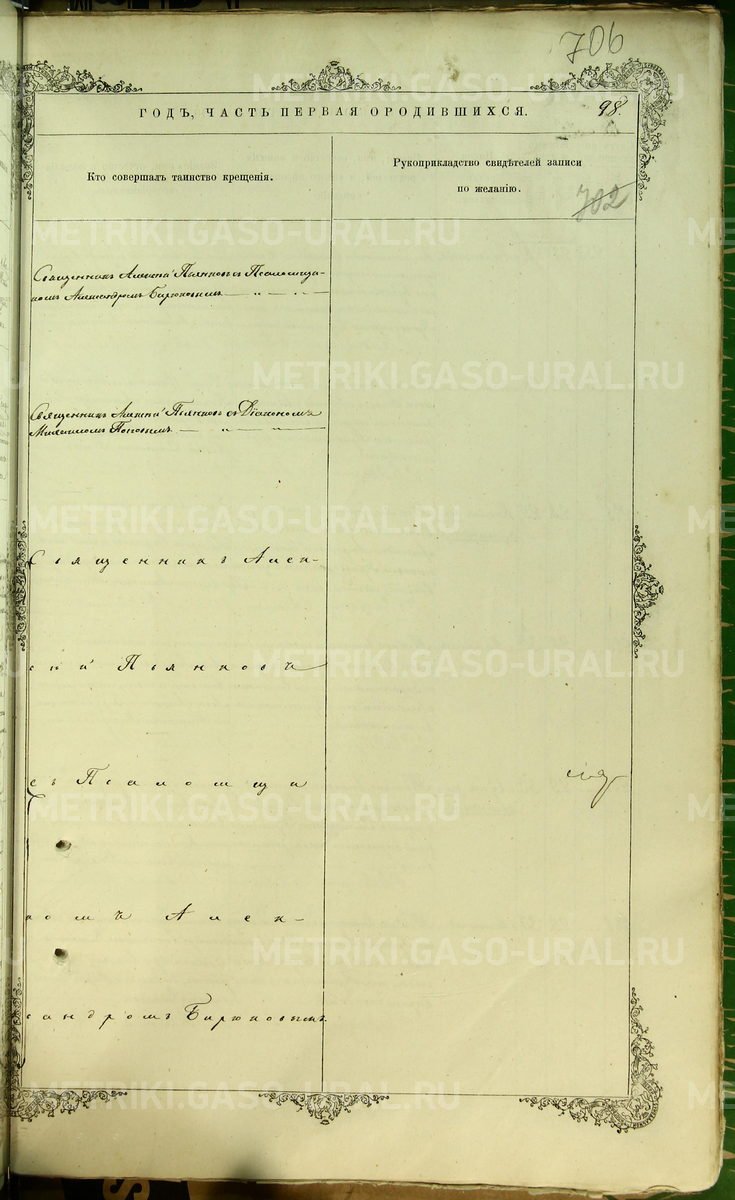 706
ГОДЪ, ЧАСТЬ ПЕРВАЯ О РОДИВШИХСЯ.
98.
Кто совершалъ таинство крещенія.
Рукоприкладство свидѣтелей записи
по желанію.
702
Священникъ Алексій Пьянковъ съ Псаломщи-
комъ Александромъ Бирюковымъ
Священникъ Алексій Пьянковъ съ Діакономъ
Михаиломъ Поповымъ
Священникъ Алек-
сій Пьянковъ
съ Псаломщи
комъ Алек-
сандромъ Бирюковымъ.
METRIKI.GASO-URAL.RU